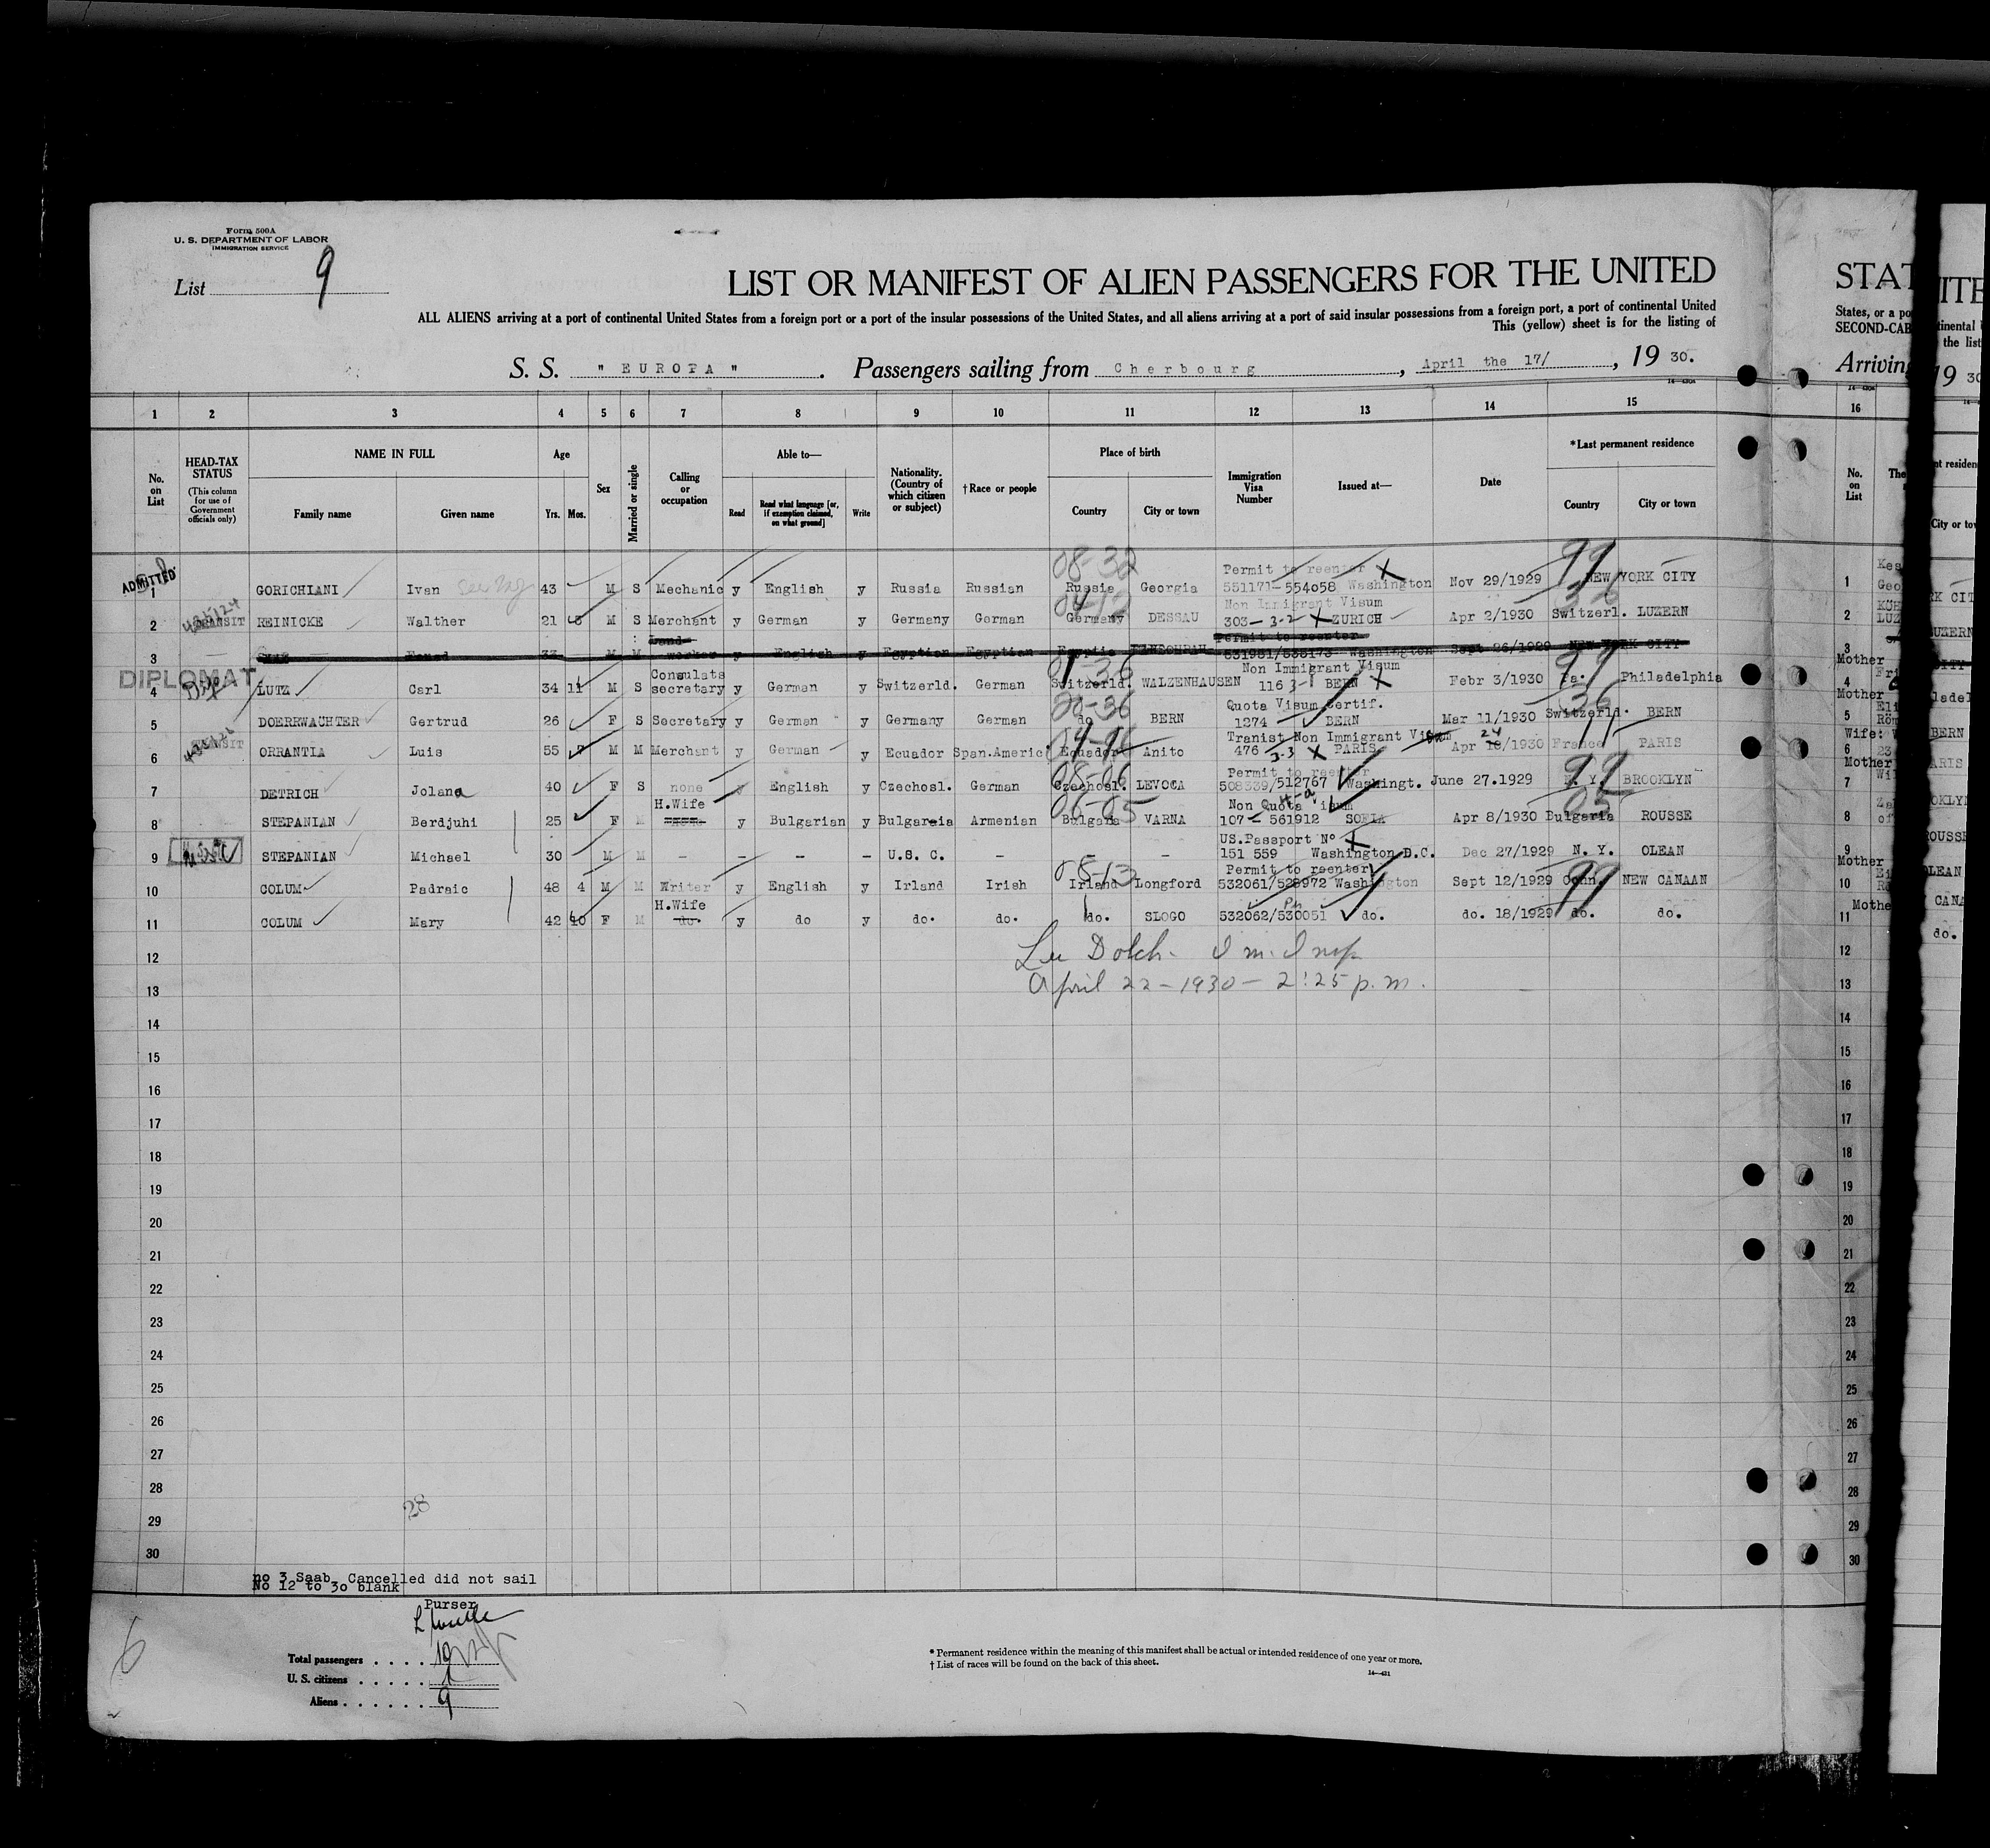 Form 500A
U. S. DEPARTMENT OF LABOR
IMMIGRATION SERVICE
List 9
LIST OR MANIFEST OF ALIEN PASSENGERS FOR THE UNITED
STAT
ALL ALIENS arriving at a port of continental United States from a foreign port or a port of the insular possessions of the United States, and all aliens arriving at a port of said insular possessions from a foreign port, a port of continental United
States, or a po
This (yellow) sheet is for the listing of
SECOND-CAB
S. S. " EUROPA " . Passengers sailing from Cherbourg , April the 17/ , 19 30.
Arriving
1 2 3 4 5 6 7 8 9 10 11 12 13 14 15 16
No. on List
HEAD-TAX STATUS
(This column for use of Government officials only)
NAME IN FULL
Family name
Given name
Age
Yrs. Mos.
Sex
Married or single
Calling or occupation
Able to—
Read
Read what language [or, if exemption claimed, on what ground]
Write
Nationality. (Country of which citizen or subject)
† Race or people
Place of birth
Country
City or town
Immigration Visa Number
Issued at—
Date
* Last permanent residence
Country
City or town
No. on List
ADMITTED
1 GORICHIANI Ivan 43 M S Mechanic y English y Russia Russian 08-32 Russia Georgia Permit to reenter 551171-554058 Washington Nov 29/1929 99 NEW YORK CITY
2 TRANSIT REINICKE Walther 21 M S Merchant y German y Germany German Germany DESSAU Non Immigrant Visum 303- 3-2 ZURICH Apr 2/1930 Switzerl. LUZERN
3 M M worker y English y Egyptian Egyptian Permit to reenter 531981/538173 Washington Sept 26/1929 NEW YORK CITY
DIPLOMAT
4 LUTZ Carl 34 11 M S Consulats secretary y German y Switzerld. German Switzerld. WALZENHAUSEN Non Immigrant Visum 116 3-1 BERN Febr 3/1930 Pa. Philadelphia
5 DOERRWACHTER Gertrud 26 F S Secretary y German y Germany German do BERN Quota Visum Certif. 1274 BERN Mar 11/1930 Switzerld. BERN
6 ORRANTIA Luis 55 M M Merchant y German y Ecuador Span.Americ Ecuador Anito Tranist Non Immigrant Visum 476 3-3 PARIS Apr /1930 France PARIS
7 DETRICH Jolana 40 F S none y English y Czechosl. German Czechosl. LEVOCA Permit to reenter 508339/512767 Washingt. June 27.1929 N. Y. BROOKLYN
8 STEPANIAN Berdjuhi 25 F M H.Wife y Bulgarian y Bulgareia Armenian Bulgaria VARNA Non Quota 107- 561912 SOFIA Apr 8/1930 Bulgaria ROUSSE
9 STEPANIAN Michael 30 M M - - - - U.S. C. - - US.Passport No 151 559 Washington D.C. Dec 27/1929 N. Y. OLEAN
10 COLUM Padraic 48 4 M M Writer y English y Irland Irish Irland Longford Permit to reenter 532061/528972 Washington Sept 12/1929 Conn. NEW CANAAN
11 COLUM Mary 42 10 F M H.Wife do. y do y do. do. do. SLOGO 532062/530051 do. do. 18/1929 do. do.
12
April 22-1930- 2:25 p.m.
13
14
15
16
17
18
19
20
21
22
23
24
25
26
27
28
28
29
30
no 3 Saab Cancelled did not sail
No 12 to 30 blank
Purser
Total passengers . . . . 10
U. S. citizens . . . . . 1
Aliens . . . . . . 9
* Permanent residence within the meaning of this manifest shall be actual or intended residence of one year or more.
† List of races will be found on the back of this sheet.
6